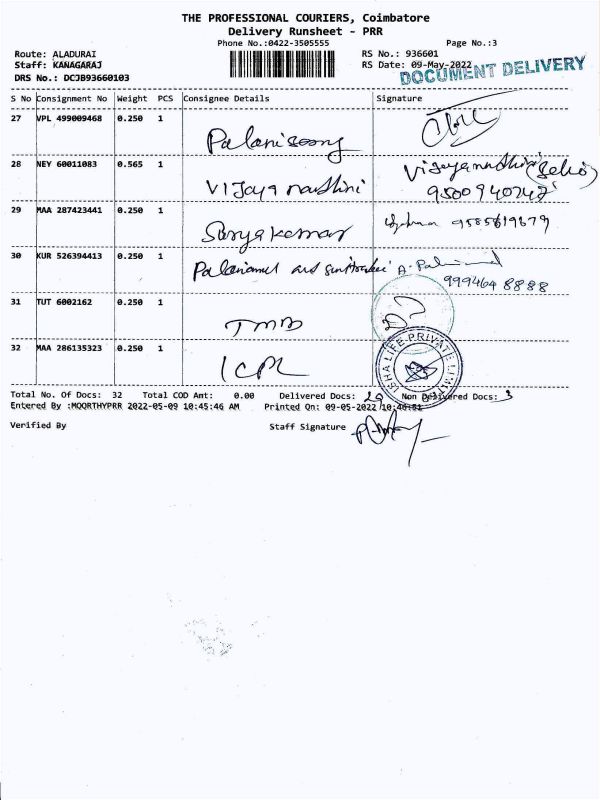 THE PROFESSIONAL COURIERS, Coimbatore
Delivery Runsheet - PRR
Phone No.:0422-3505555 Page No.:3
Route: ALADURAI RS No.: 936601
Staff: KANAGARAJ RS Date: 09-May-2022
DRS No.: DCJB93660103 DOCUMENT DELIVERY
S No Consignment No Weight PCS Consignee Details Signature
27 VPL 499009468 0.250 1
28 NEY 60011083 0.565 1 Vijaya nadhini
9500940242
29 MAA 287423441 0.250 1 Suryakumar 9585619679
30 KUR 526394413 0.250 1 Palaniamal and
999464 8888
31 TUT 6002162 0.250 1 TMB
32 MAA 286135323 0.250 1 ISHA LIFE PRIVATE LIMITED
Total No. Of Docs: 32 Total COD Amt: 0.00 Delivered Docs: 29 Non Delivered Docs: 3
Entered By :MOORTHYPRR 2022-05-09 10:45:46 AM Printed On: 09-05-2022 10:46:51
Verified By Staff Signature